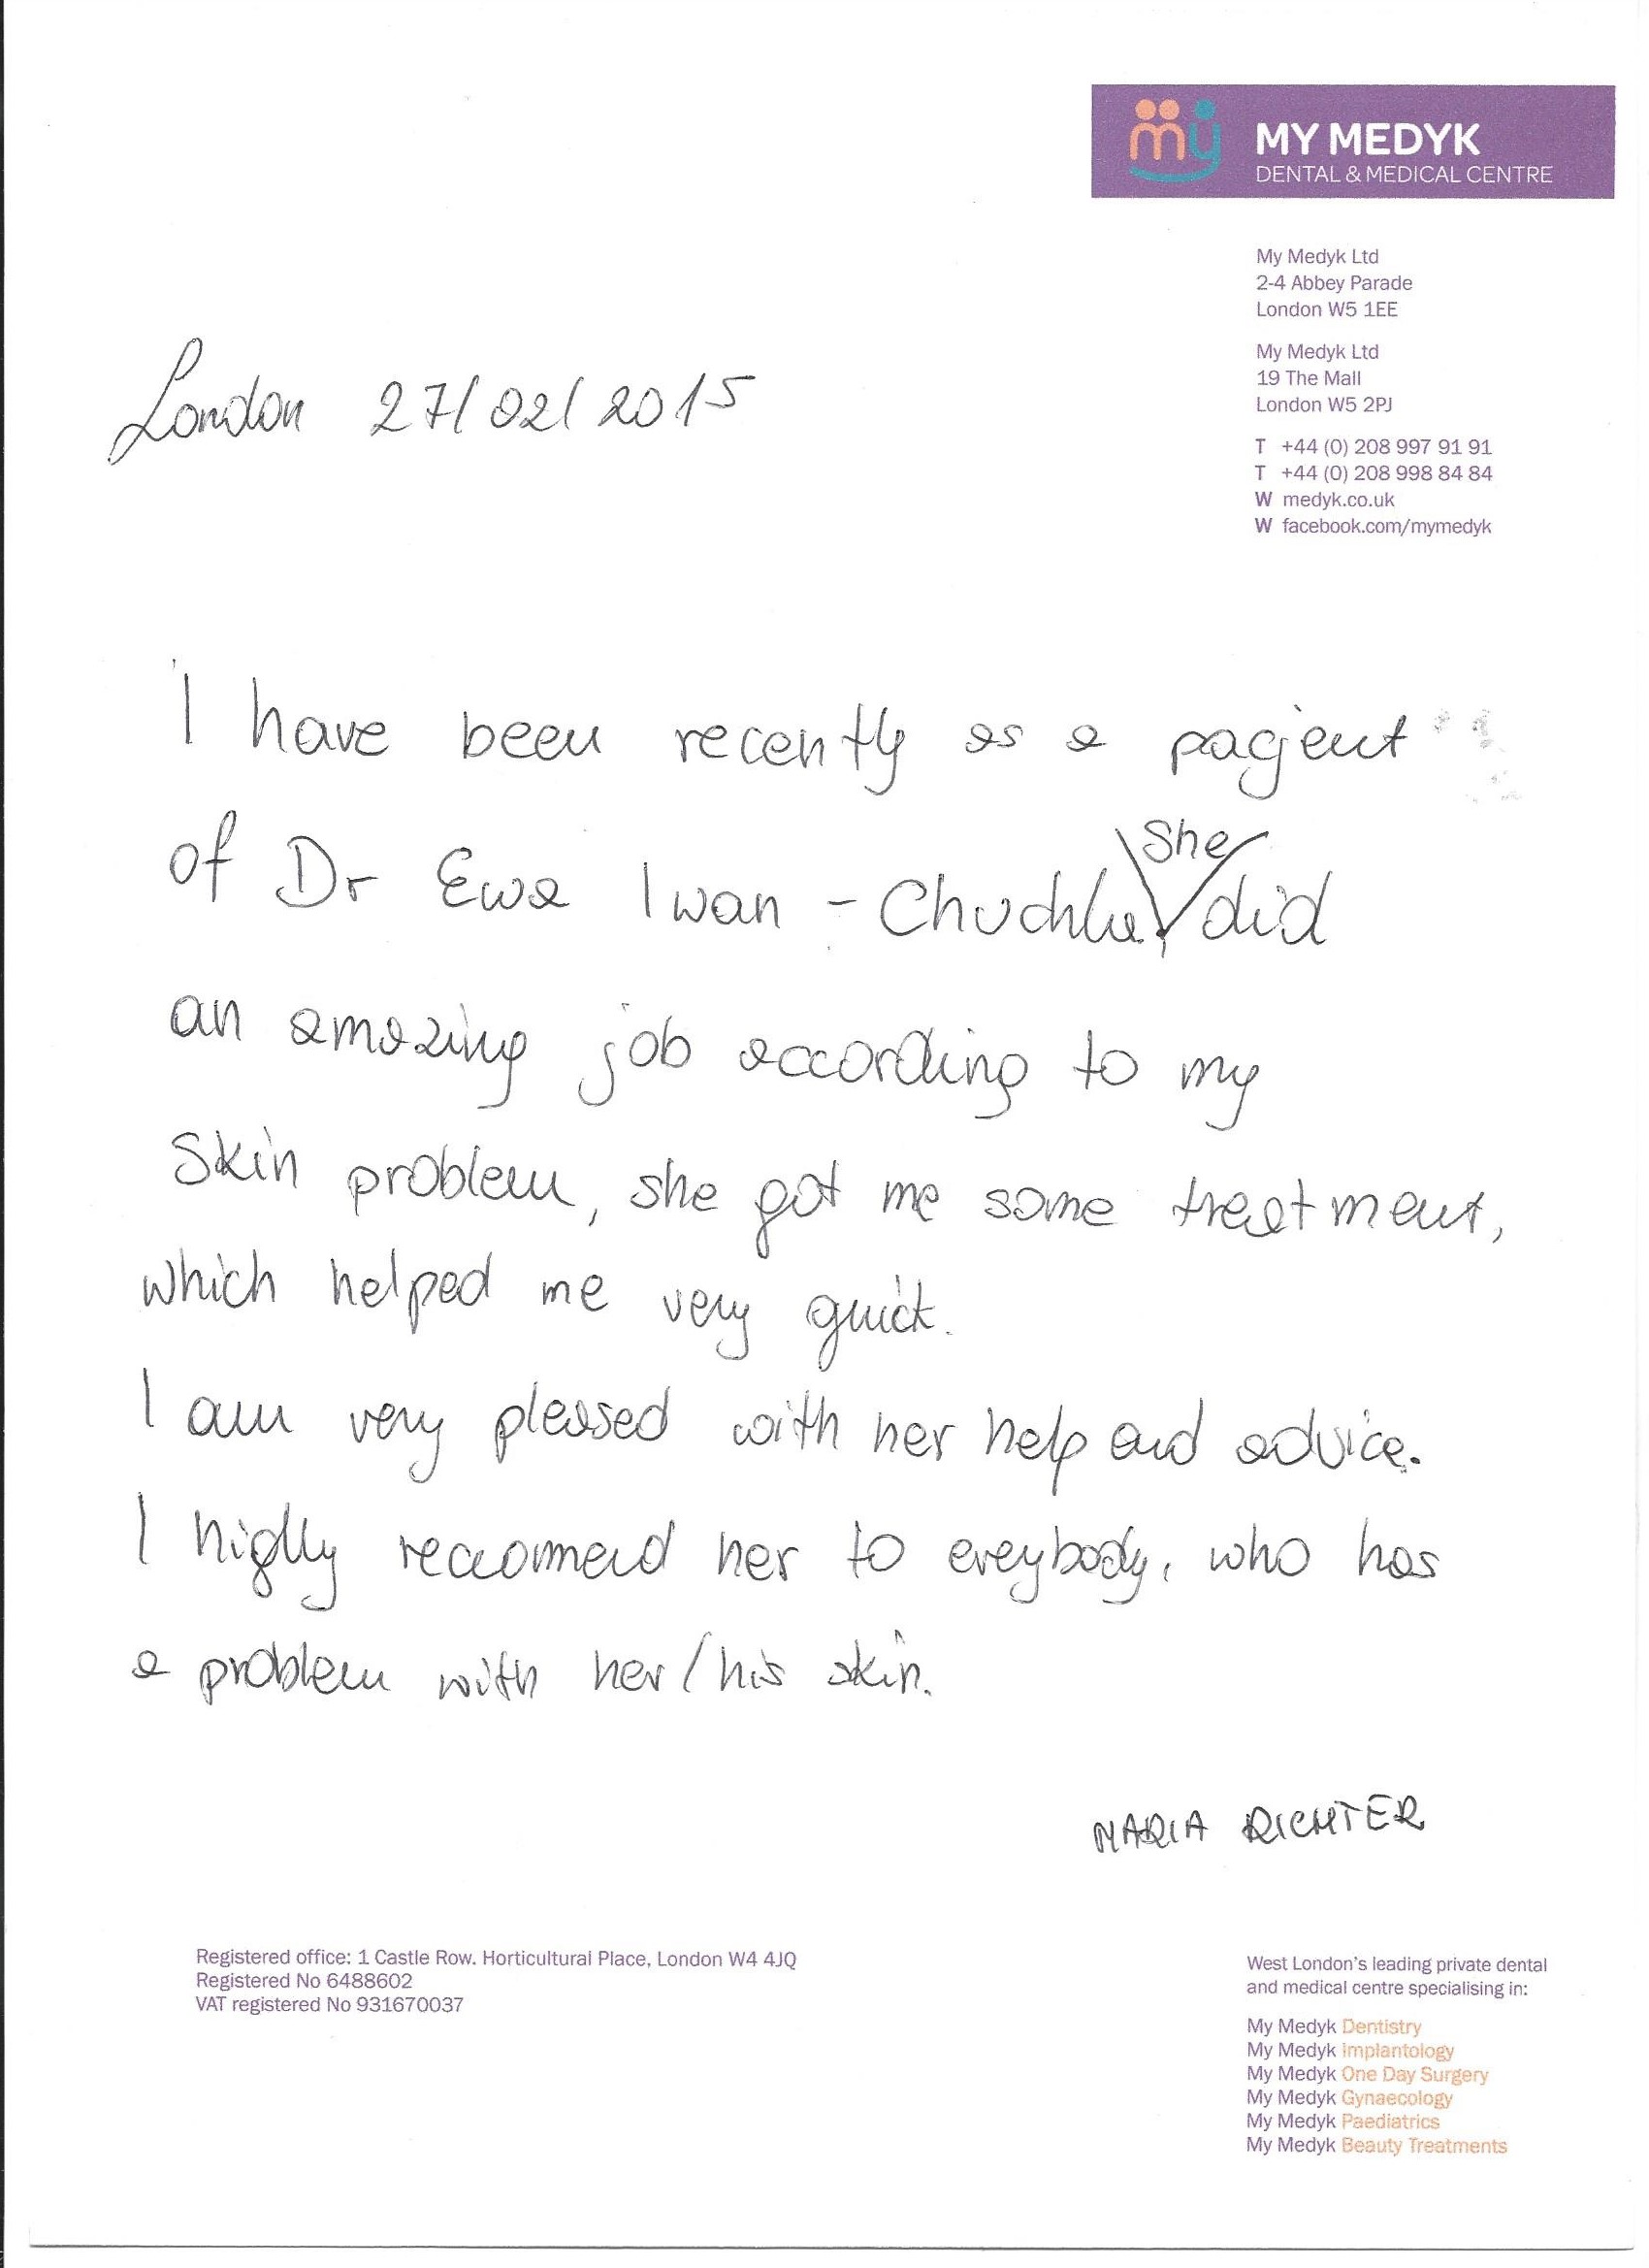 my MY MEDYK
DENTAL & MEDICAL CENTRE
My Medyk Ltd
2-4 Abbey Parade
London W5 1EE
My Medyk Ltd
19 The Mall
London W5 2PJ
T +44 (0) 208 997 91 91
T +44 (0) 208 998 84 84
W medyk.co.uk
W facebook.com/mymedyk
London 27/02/2015
I have been recently as a pagient
of Dr Ewa Iwan - Chuchla, She did
an amazing job according to my
Skin problem, she got me some treatment,
which helped me very quick.
I am very pleased with her help and advice.
I higlly reccommend her to evreybody, who has
a problem with her/his skin.
MARIA RICHTER
Registered office: 1 Castle Row. Horticultural Place, London W4 4JQ
Registered No 6488602
VAT registered No 931670037
West London's leading private dental
and medical centre specialising in:
My Medyk Dentistry
My Medyk Implantology
My Medyk One Day Surgery
My Medyk Gynaecology
My Medyk Paediatrics
My Medyk Beauty Treatments